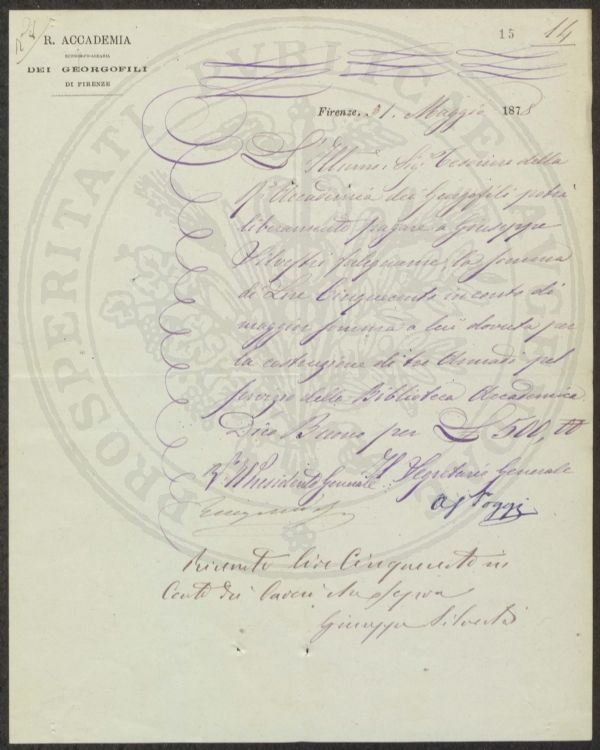 15
14
R. ACCADEMIA
ECONOMICO-AGRARIA
DEI GEORGOFILI
DI FIRENZE
Firenze, 31. Maggio 1878
L'Illmo: Sig. Tesoriere della
R. Accademia dei Georgofili potrà
liberamente pagare a Giuseppe
Silvestri falegname, la somma
di Lire Cinquecento in conto di
maggior somma a lui dovuta per
la costruzione di tre Armadi pel
servizio della Biblioteca Accademica.
Dico Buono per L 500, 00
Il Presidente Generale Il Segretario Generale
Poggi
Ricevuto lire Cinquecento in
Conto dei lavori di sopra
Giuseppe Silvestri
PROSPERITATI PVBLICAE AVGENDAE